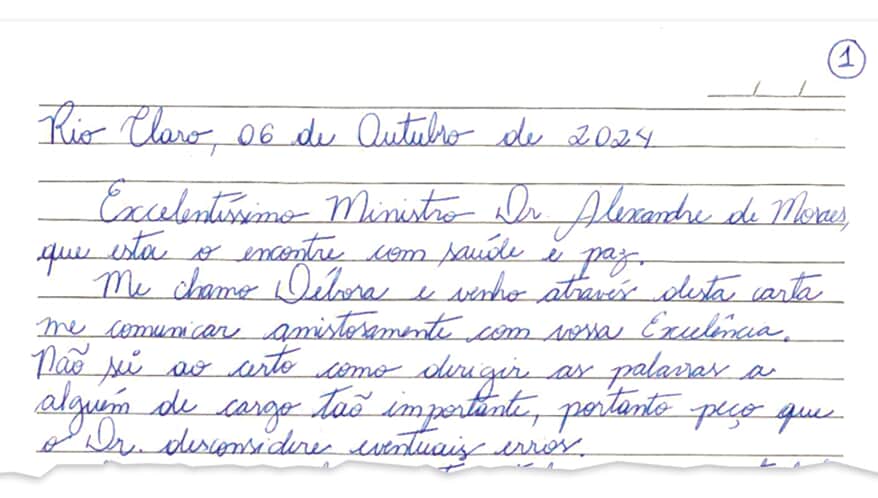 1
Rio Claro, 06 de Outubro de 2024
Excelentíssimo Ministro Dr. Alexandre de Moraes,
que esta o encontre com saúde e paz.
Me chamo Débora e venho através desta carta
me comunicar amistosamente com vossa Excelência.
Não sei ao certo como dirigir as palavras a
alguém de cargo taõ importante, portanto peço que
o Dr. desconsidere eventuais erros.